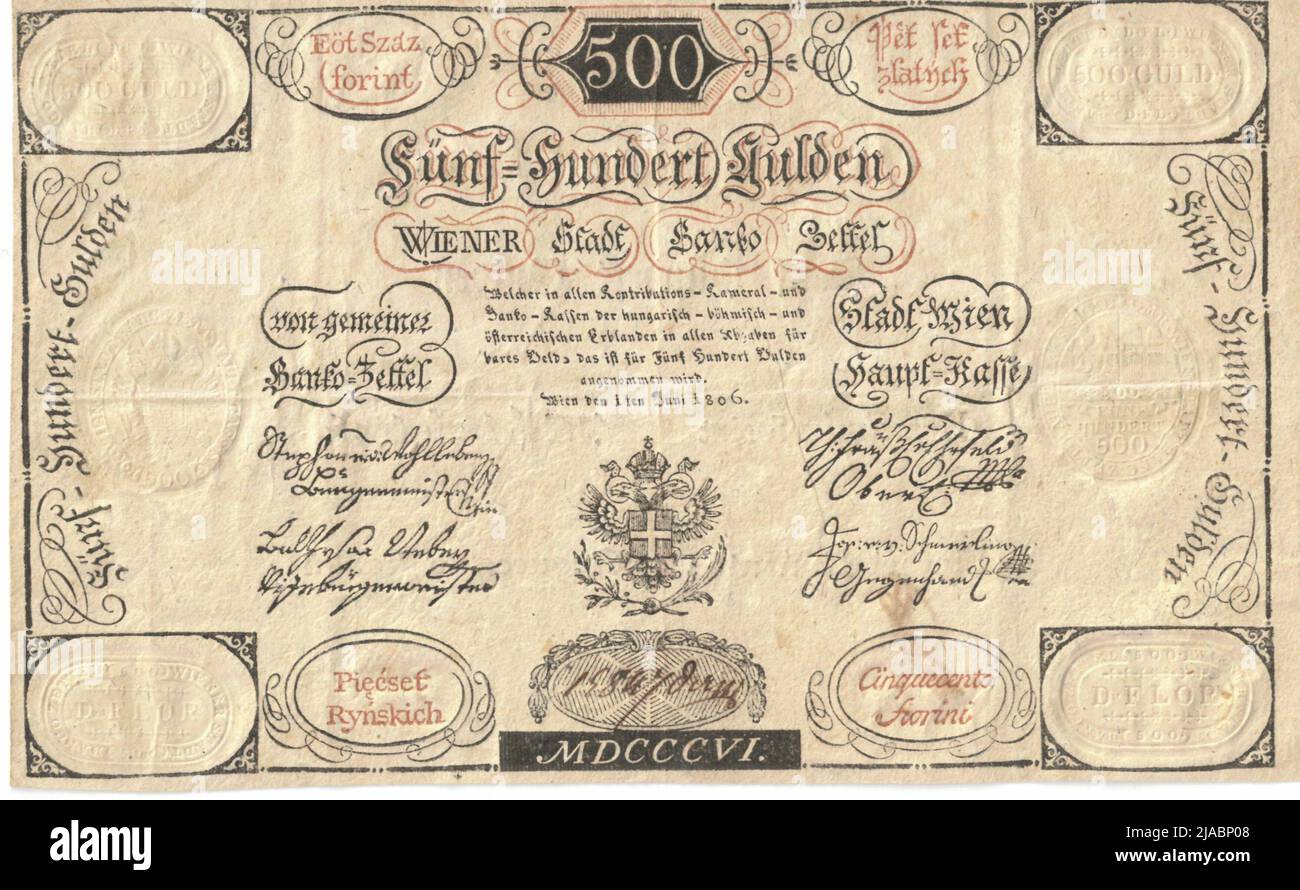 Eöt Száz
forint
500
Pět set
zlatých
500 GULD
500 GULD
Fünf=Hundert Gulden
WIENER Stadt Banko Zettel
Fünf-Hundert-Gulden
Fünf-Hundert-Gulden
von gemeiner
Banko=Zettel
Welcher in allen Kontributions-Kameral-und
Banko-Kassen der hungarisch-böhmisch-und
österreichischen Erblanden in allen Abgaben für
bares Geld, das ist für Fünf Hundert Gulden
angenommen wird.
Wien den 1ten Juni 1806.
Stadt Wien
Haupt=Kasse
500
Oberl
Jos: v: v. Schmerling
Gegenhandl
Pięćset
Ryńskich
Cinquecento
Fiorini
D·FLOR
D·FLOR
MDCCCVI.
alamy
Image ID: 2JABP08
www.alamy.com